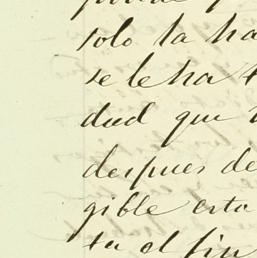 solo la ha
se le ha
dud que
despues de
gible esta
ta el fin